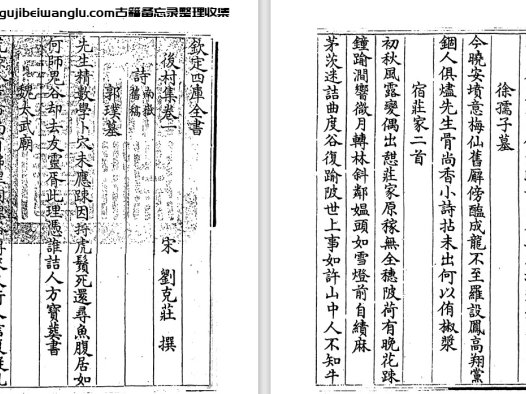 gujibeiwanglu.com古籍备忘录整理收集
欽定四庫全書
後村集卷一
宋 劉克莊 撰
詩 南嶽舊稿
郭璞墓
先生精數學卜穴未應踈因捋虎鬚死還尋魚腹居如
何師鬼谷却去友靈胥此理憑誰詰人方寶葬書
魏太武廟
徐孺子墓
今晚安墳意梅仙舊廨傍醢成龍不至羅設鳳高翔黨
錮人俱燼先生骨尚香小詩拈未出何以侑椒漿
宿莊家二首
初秋風露變偶出憇莊家原稼無全穗陂荷有晚花踈
鐘踰澗響微月轉林斜鄰媪頭如雪燈前自績麻
茅茨迷詰曲度谷復踰陂世上事如許山中人不知牛